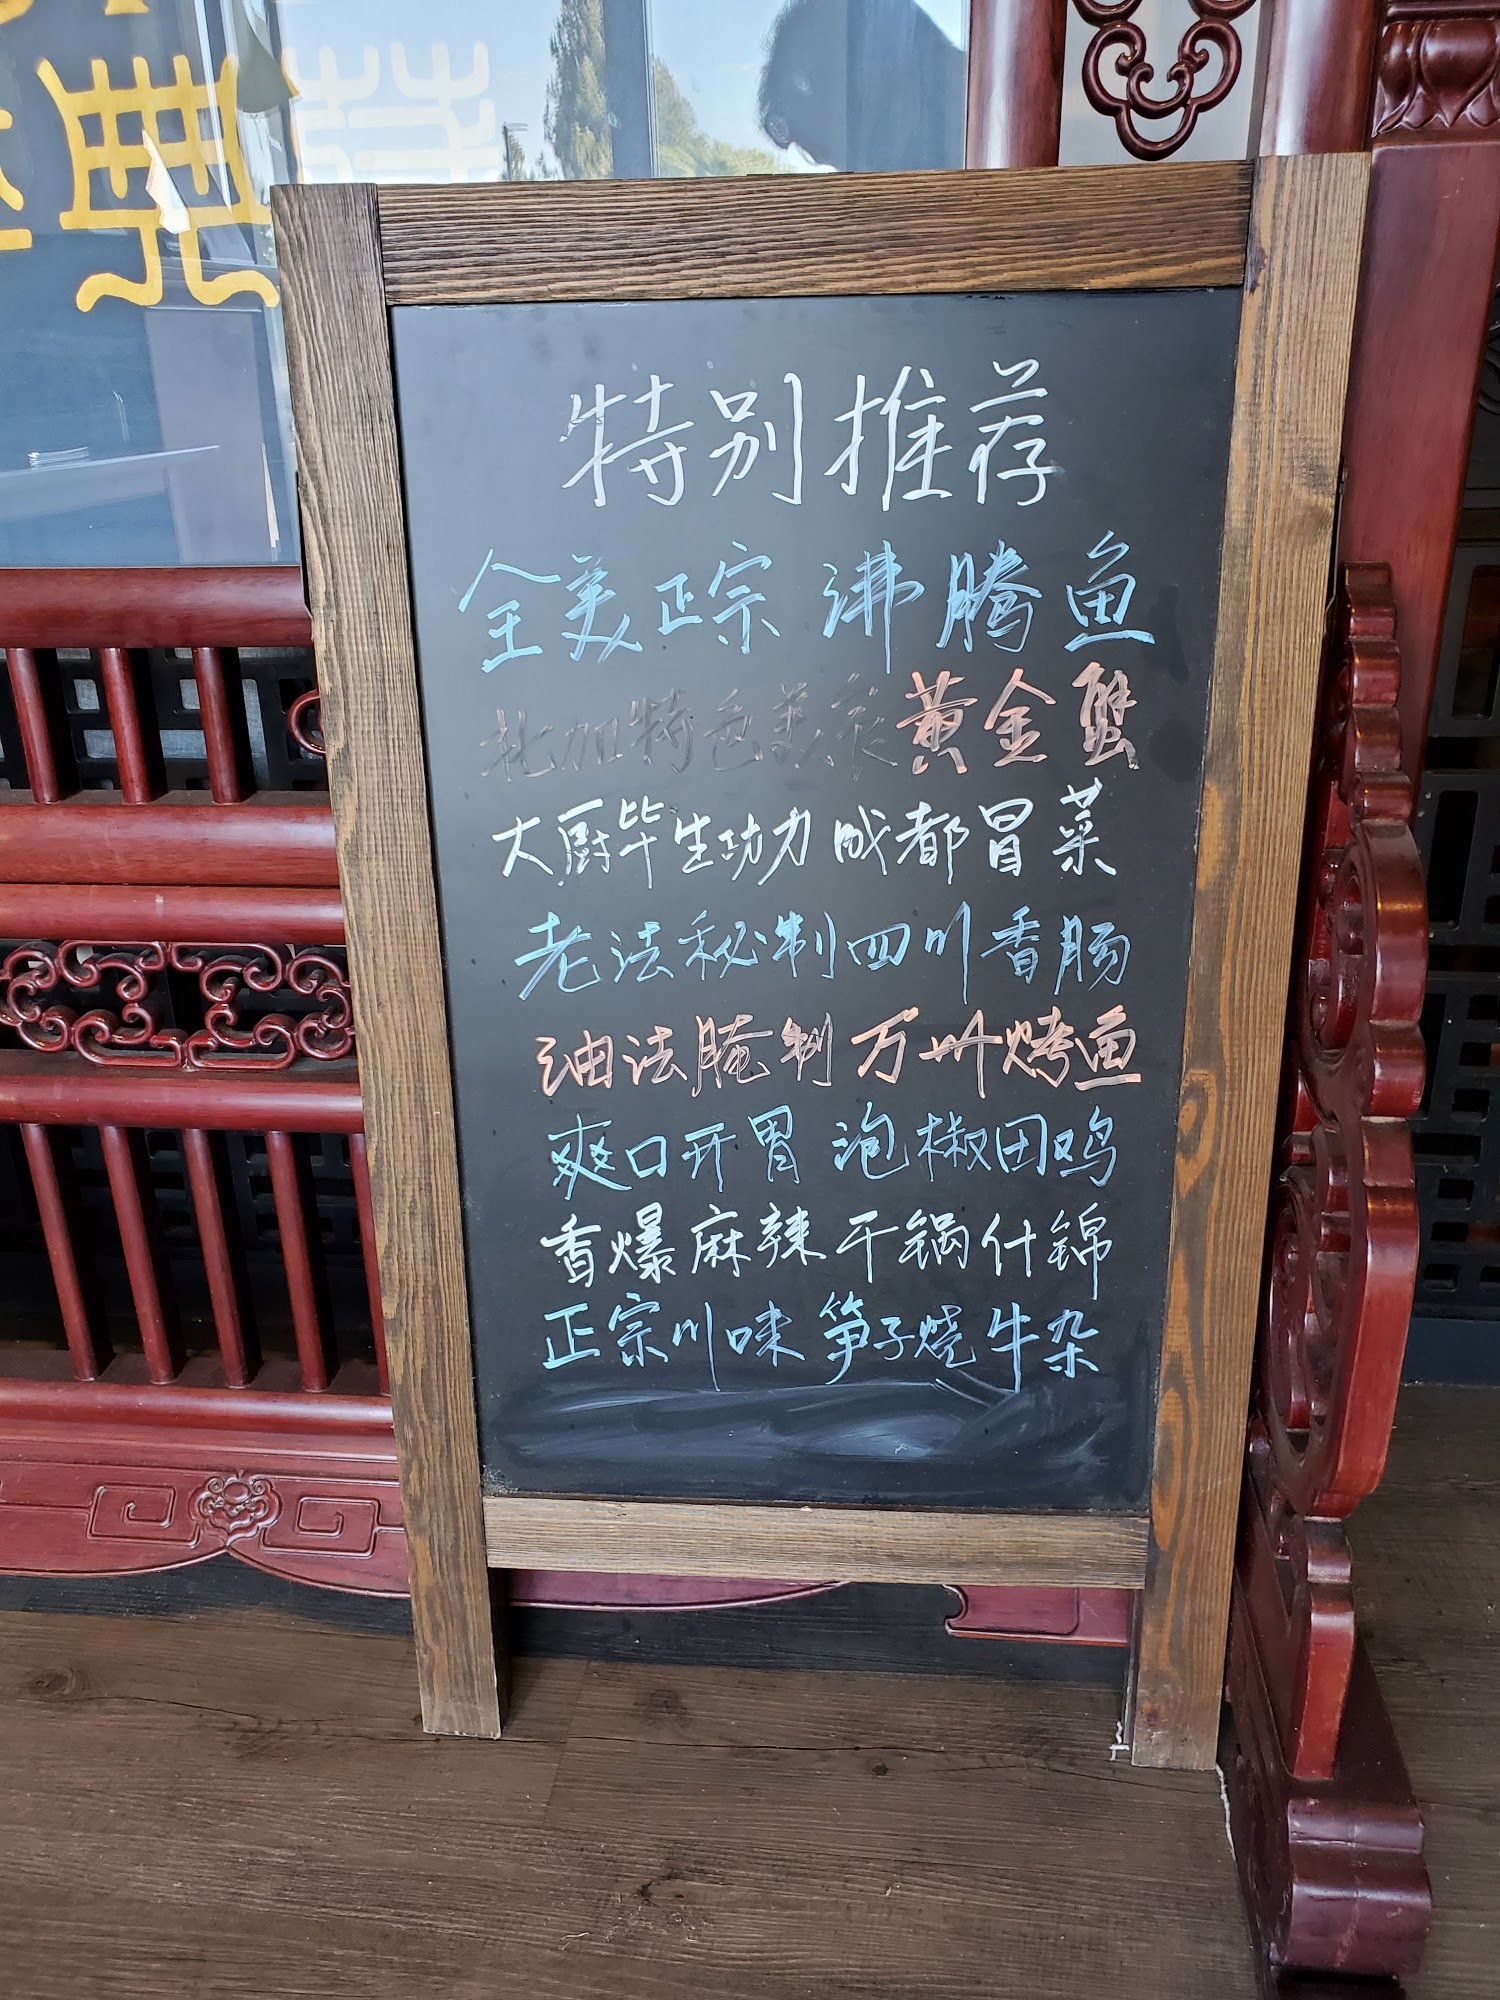 特别推荐
全美正宗 沸腾鱼
北加特色美 黄金蟹
大厨毕生功力 成都冒菜
老法秘制四川香肠
油法腌制 万州烤鱼
爽口开胃 泡椒田鸡
香爆麻辣干锅什锦
正宗川味 笋子烧牛杂